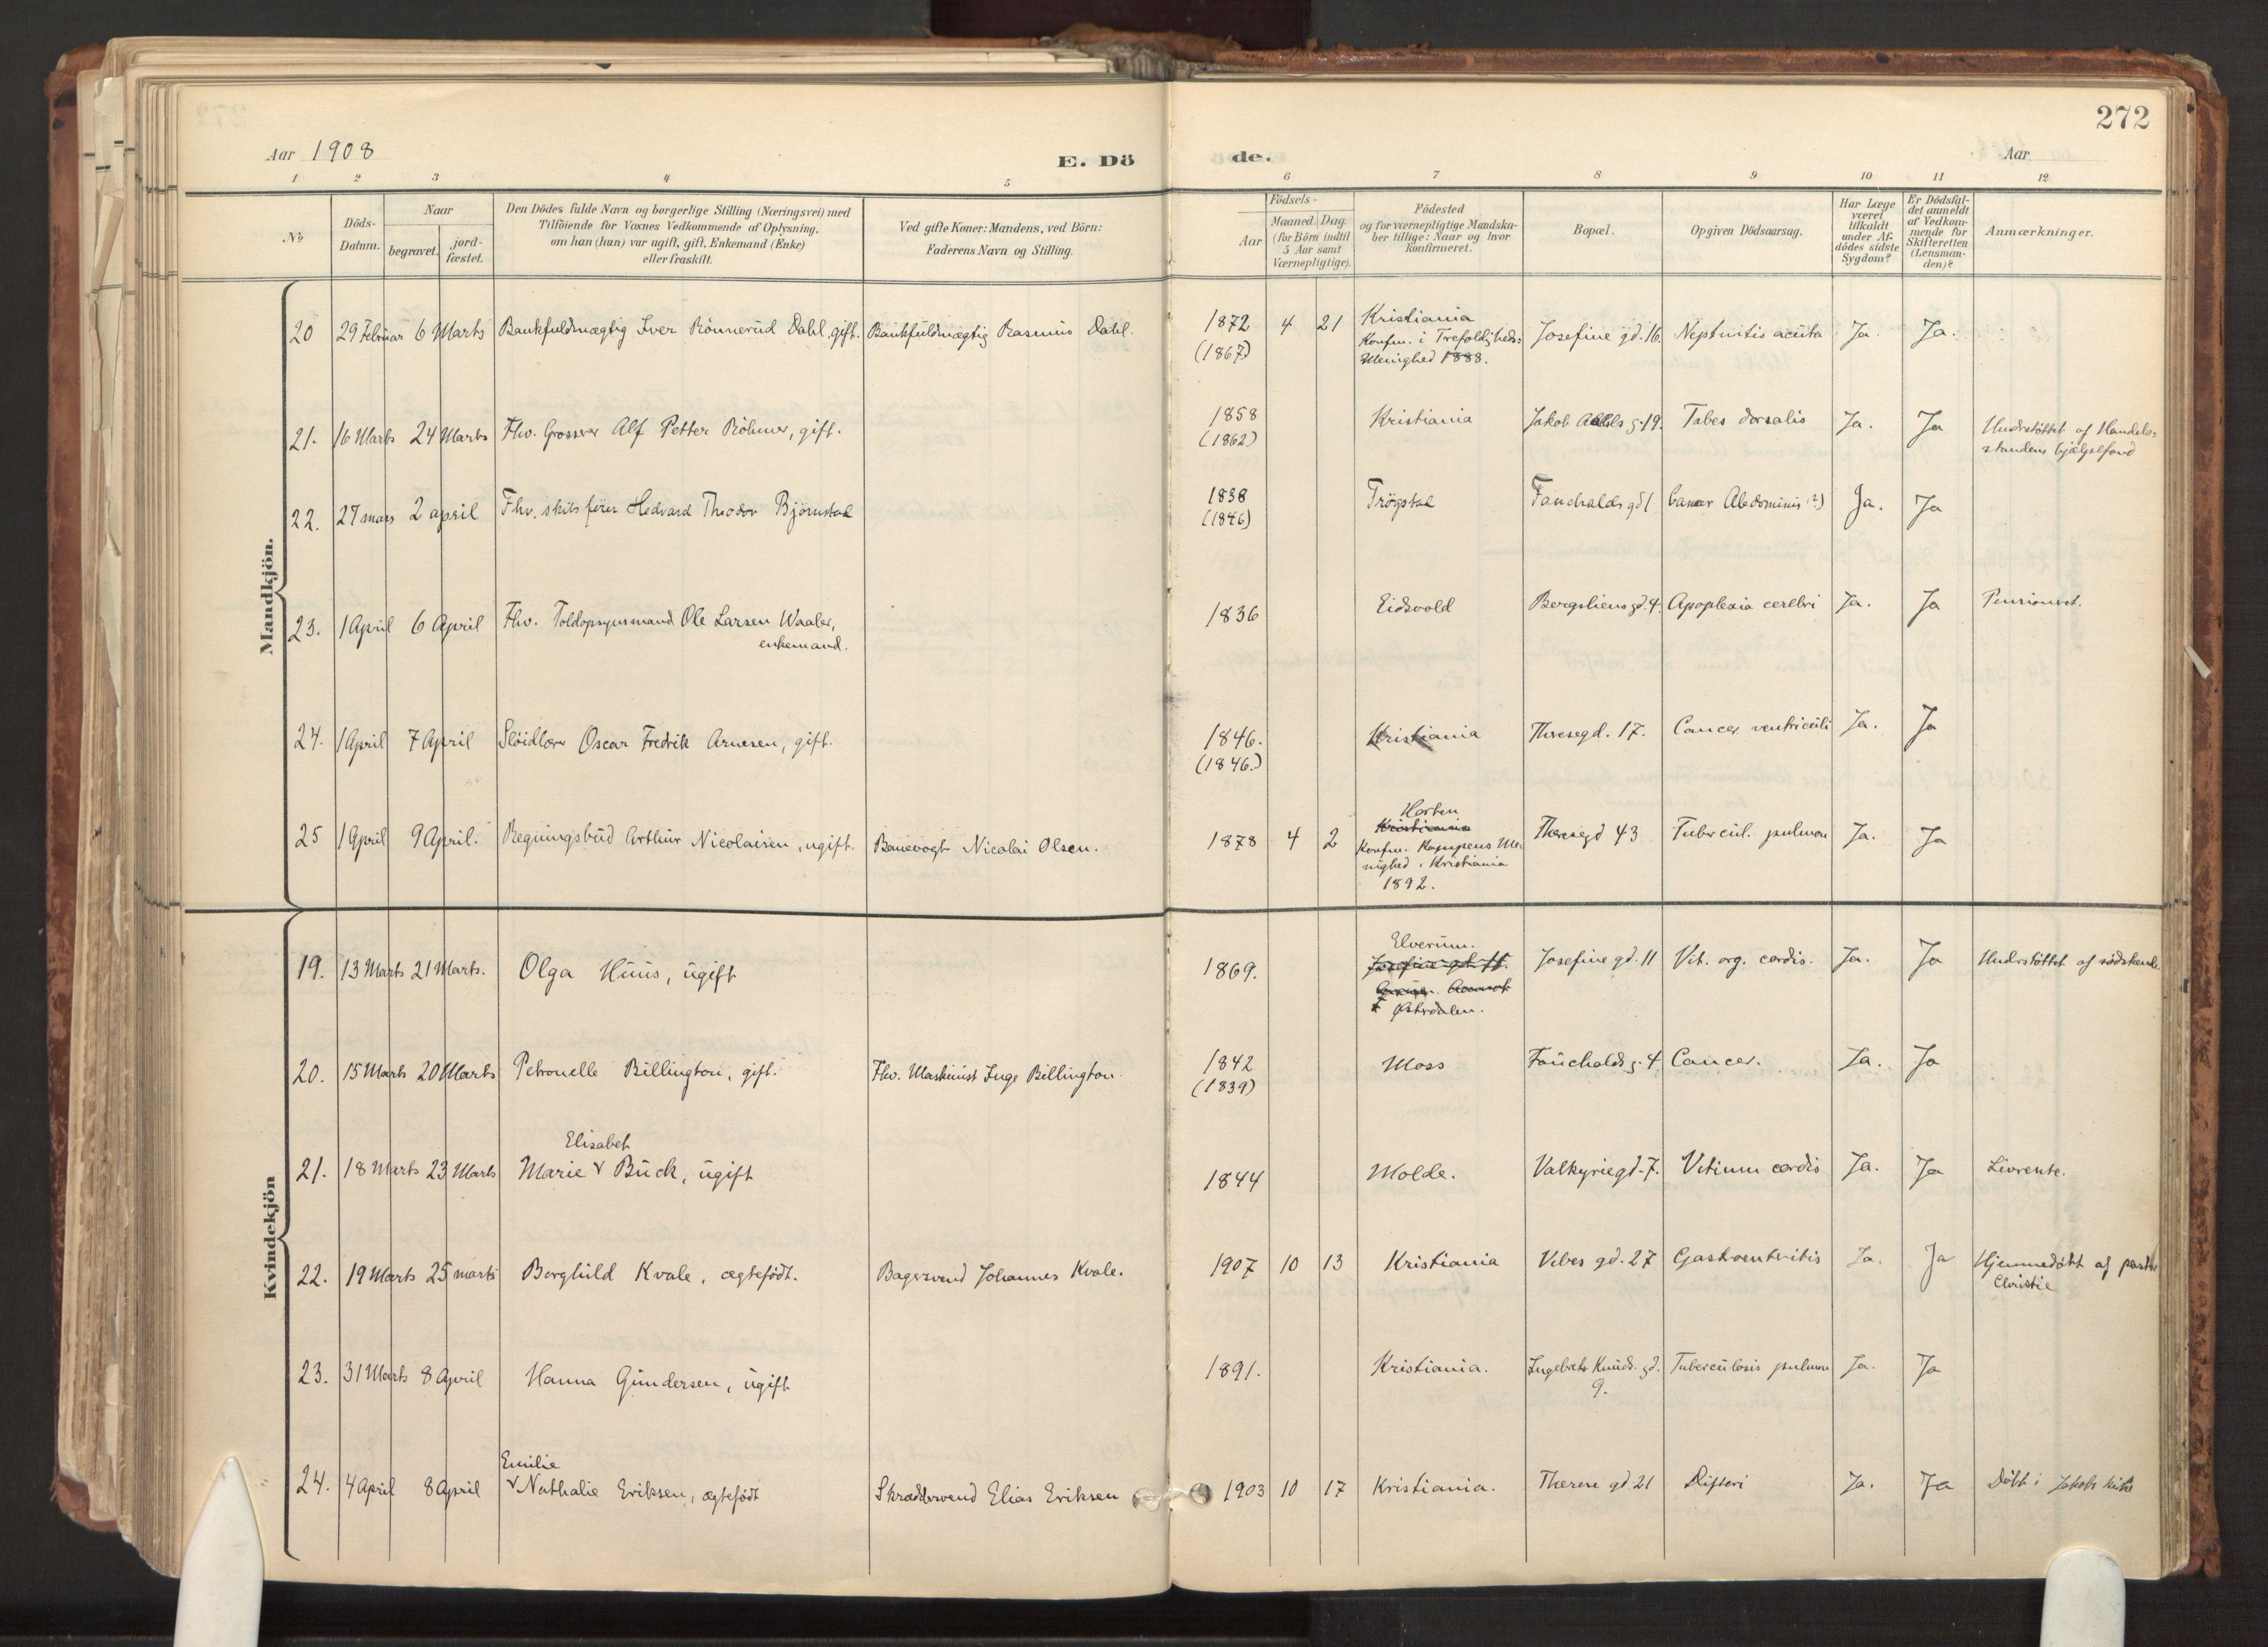 272
Aar 1908
E. Dö
de.
Aar
1 2 3 4 5 6 7 8 9 10 11 12
No
Döds-
Datum.
Naar
begravet.
jord-
fæstet.
Den Dödes fulde Navn og borgerlige Stilling (Næringsvei) med
Tilföiende for Voxnes Vedkommende af Oplysning,
om han (hun) var ugift, gift, Enkemand (Enke)
eller fraskilt.
Ved gifte Koner: Mandens, ved Börn:
Faderens Navn og Stilling.
Födsels-
Aar
Maaned. Dag.
(for Börn indtil
5 Aar samt
Værnepligtige).
Födested
og for værnepligtige Mandska-
ber tillige: Naar og hvor
konfirmeret.
Bopæl.
Opgiven Dödsaarsag.
Har Læge
været
tilkaldt
under Af-
dödes sidste
Sygdom?
Er Dödsfal-
det anmeldt
af Vedkom-
mende for
Skifteretten
(Lensman-
den)?
Anmærkninger.
Mandkjön.
20 29 Februar 6 Marts Bankfuldmægtig Iver Rönnerud Dahl, gift. Bankfuldmægtig Rasmus Dahl. 1872 4 21 Kristiania Josefine gd. 16. Neptritis acuta Ja. Ja.
(1867) Konfm. i Trefoldigheds-
Menighed 1888.
21. 16 Marts 24 Marts Fhv. Grosserer Alf Petter Röhmer, gift. 1858 Kristiania Jakob Aalls g. 19. Tabes dorsalis Ja. Ja Understöttet af Handels-
(1862) standens hjælpefond
22. 27 mars 2 april Fhv. skibsförer Hedvard Theodor Björnstad 1838 Trögstad Fauchalds gd 1 Cancer Abdominis (?) Ja. Ja
(1846)
23. 1 April 6 April Fhv. Toldopsynsmand Ole Larsen Waaler, 1836 Eidsvold Bergsliens gd. 4. Apoplexia cerebri Ja. Ja Pensioneret.
enkemand.
24. 1 April 7 April Slöidlærer Oscar Fredrik Arnesen, gift. 1846. Kristiania Theresegd. 17. Cancer ventriculi Ja. Ja
(1846.)
25 1 April 9 April. Regningsbud Arthur Nicolaisen, ugift. Banevogt Nicolai Olsen. 1878 4 2 Horten Theresegd 43 Tubercul. pulmon Ja. Ja
Kristiania
Konfm. Kampens Me-
nighed i Kristiania
1892.
Kvindekjön
19. 13 Marts 21 Marts. Olga Huus, ugift 1869. Elverum. Josefine gd. 11 Vit. org. cordis. Ja. Ja Understöttet af södskende.
Josefine gd. 11.
Østerdalen.
20. 15 Marts 20 Marts Petronelle Billington, gift. Fhv. Maskinist Inge Billington. 1842 Moss Fauchalds g. 4 Cancer. Ja. Ja
(1839)
Elisabet
21. 18 Marts 23 Marts Marie v Buck, ugift 1844 Molde. Valkyriegd. 7. Vitium cordis Ja. Ja Livrente.
22. 19 Marts 25 marts Borghild Kvale, ægtefödt. Bagersvend Johannes Kvale. 1907 10 13 Kristiania Vibes gd. 27 Gastroentritis Ja. Ja Hjemmedöbt af pastor
Christie
23. 31 Marts 8 April Hanna Gundersen, ugift 1891. Kristiania. Ingebret Knuds. gd. Tuberculosis pulmon Ja. Ja
9.
Emilie
24. 4 April 8 April v Nathalie Eriksen, ægtefödt Skræddersvend Elias Eriksen 1903 10 17 Kristiania. Therese gd 21 Difteri Ja. Ja Döbt i Jakobs kirke